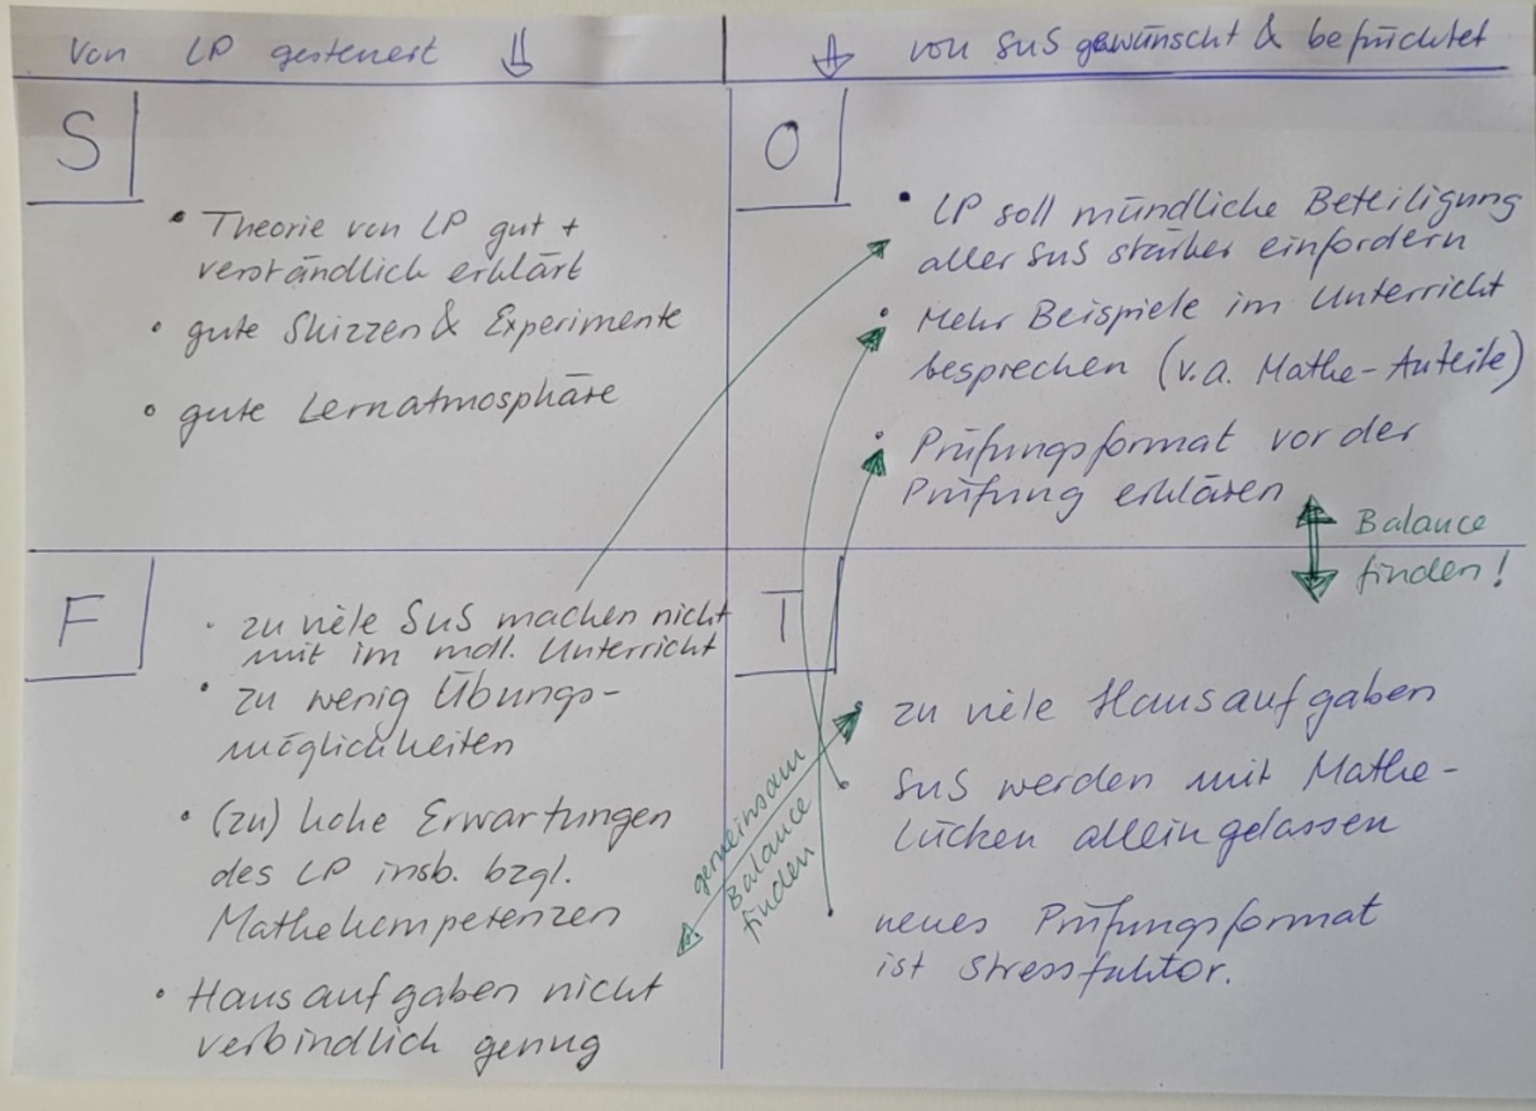 Von LP gesteuert
von SuS gewünscht & befürchtet
S
• Theorie von LP gut +
verständlich erklärt
• gute Skizzen & Experimente
• gute Lernatmosphäre
O
• LP soll mündliche Beteiligung
aller SuS stärker einfordern
• Mehr Beispiele im Unterricht
besprechen (v.a. Mathe-Anteile)
• Prüfungsformat vor der
Prüfung erklären
Balance
finden!
F
• zu viele SuS machen nicht
mit im mdl. Unterricht
• zu wenig Übungs-
möglichkeiten
• (zu) hohe Erwartungen
des LP insb. bzgl.
Mathekompetenzen
• Hausaufgaben nicht
verbindlich genug
gemeinsam
Balance
finden
T
• zu viele Hausaufgaben
• SuS werden mit Mathe-
Lücken allein gelassen
• neues Prüfungsformat
ist Stressfaktor.